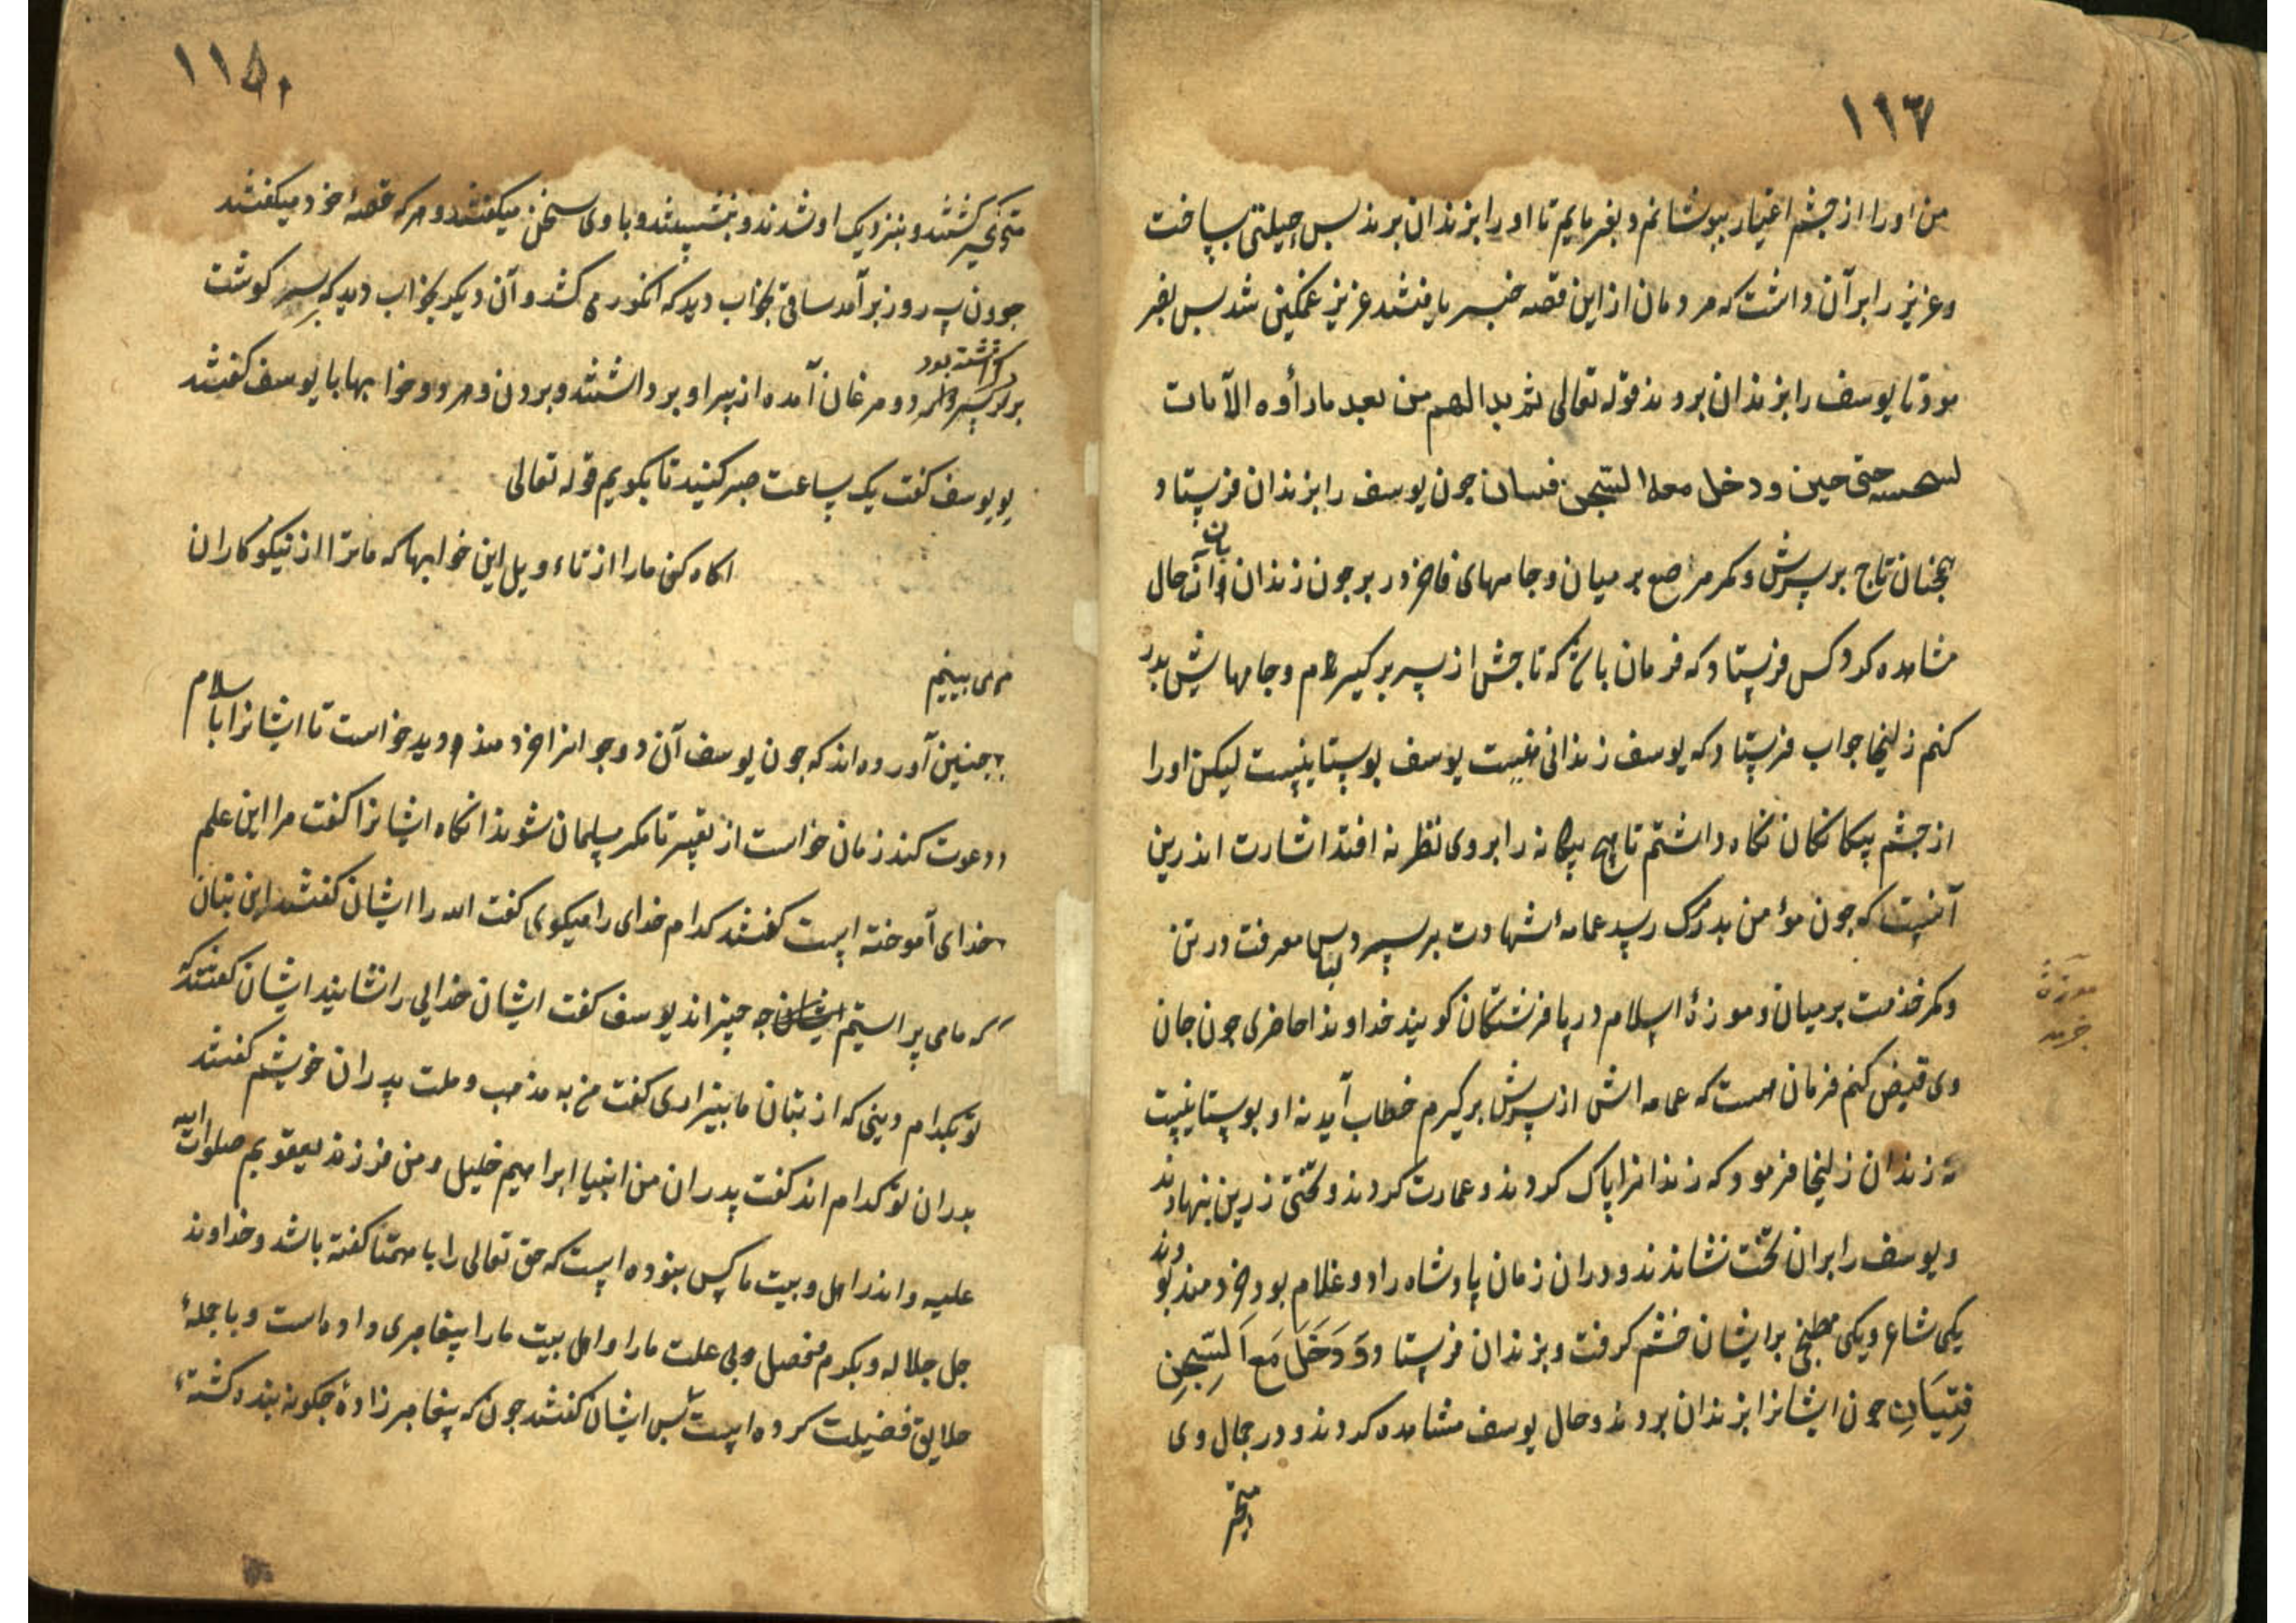 ١١٦٧
من اورا از چشم اغیار بپوشانم و بفرمایم تا اورا بزندان برند پس حیلتی بساخت
و عزیز را بر آن داشت که مردمان از این قصه خبر یافتند عزیز غمکین شد پس بفر
مود تا یوسف را بزندان بردند قوله تعالی ثم بدا لهم من بعد ما رأوه الآیات
لیسجننه حتی حین و دخل معه السجن فتیان چون یوسف را بزندان فرستاد
همچنان تاج بر سرش و کمر مرصع بر میان و جامهای فاخر در بر چون زندان بان آن حال
مشاهده کرد کس فرستاد که فرمان باشد که تاجش از سر برکیرم و جامهایش بدر
کنم زلیخا جواب فرستاد که یوسف زندانی نیست یوسف بوستانیست لیکن اورا
از چشم بیکانکان نکاه داشتم تا هیچ بیکانه را بر وی نظر نه افتد اشارت اندرین
آنست که چون مؤمن بدر مرک رسد عمامهٔ شهادت بر سر و لباس معرفت در تن
و کمر خدمت بر میان و موزهٔ اسلام در پا فرشتکان کویند خداوندا حاضری چون جان
وی قبض کنم فرمان هست که عمامه اش از سرش برکیرم خطاب آید نه او بوستانیست
نه زندان زلیخا فرمود که زندانرا پاک کردند و عمارت کردند و تختی زرین بنهادند
و یوسف را بران تخت نشاندند و دران زمان پادشاه را دو غلام بود خردمند بودند
یکی شاعر و یکی مطبخی بر ایشان خشم کرفت و بزندان فرستاد وَ دَخَلَ مَعَهُ السِّجنِ
فِتیَانِ چون ایشانرا بزندان بردند و حال یوسف مشاهده کردند و در جمال وی
متحیر
١١٥٠
متحیر کشتند و بنزدیک او شدند و بنشستند و با وی سخن میکفتند و هر که قصهٔ خود میکفتند
چون سه روز برآمد ساقی بخواب دید که انکور می کشد و آن دیکر بخواب دید که سر کوشت
بر سر دارد و مرغان آمده از سر او برداشتند و بردن و هر دو خوابها با یوسف کفتند
یوسف کفت یک ساعت صبر کنید تا بکویم قوله تعالی
اکاه کن ما را از تاءویل این خوابها که ما ترا از نیکوکاران
می بینیم
چنین آورده اند که چون یوسف آن دو جوانرا خردمند دید خواست تا ایشانرا با سلام
دعوت کند زمان خواست از تفسیر تا مکر مسلمان شوند انکاه ایشانرا کفت مرا این علم
خدای آموخته است کفتند کدام خدای را میکوی کفت الله را ایشان کفتند این بتان
که ما می پراستیم چه چیزاند یوسف کفت ایشان خدایی را نشایند ایشان کفتند که
تو بکدام دینی که از بتان ما بیزاری کفت من به مذهب و ملت پدران خویشم کفتند
پدران تو کدام اند کفت پدران من انبیا ابراهیم خلیل و من فرزند یعقوبم صلوات الله
علیه و اندر اهل و بیت ما کس نبوده است که حق تعالی را با همتا کفته باشد و خداوند
جل جلاله و بکرم مفصل و بی علت ما را و اهل بیت ما را پیغامبری داده است و با جملهٔ
خلایق فضیلت کرده است پس ایشان کفتند چون که پیغامبر زادهٔ چکونه بنده کشتهٔ